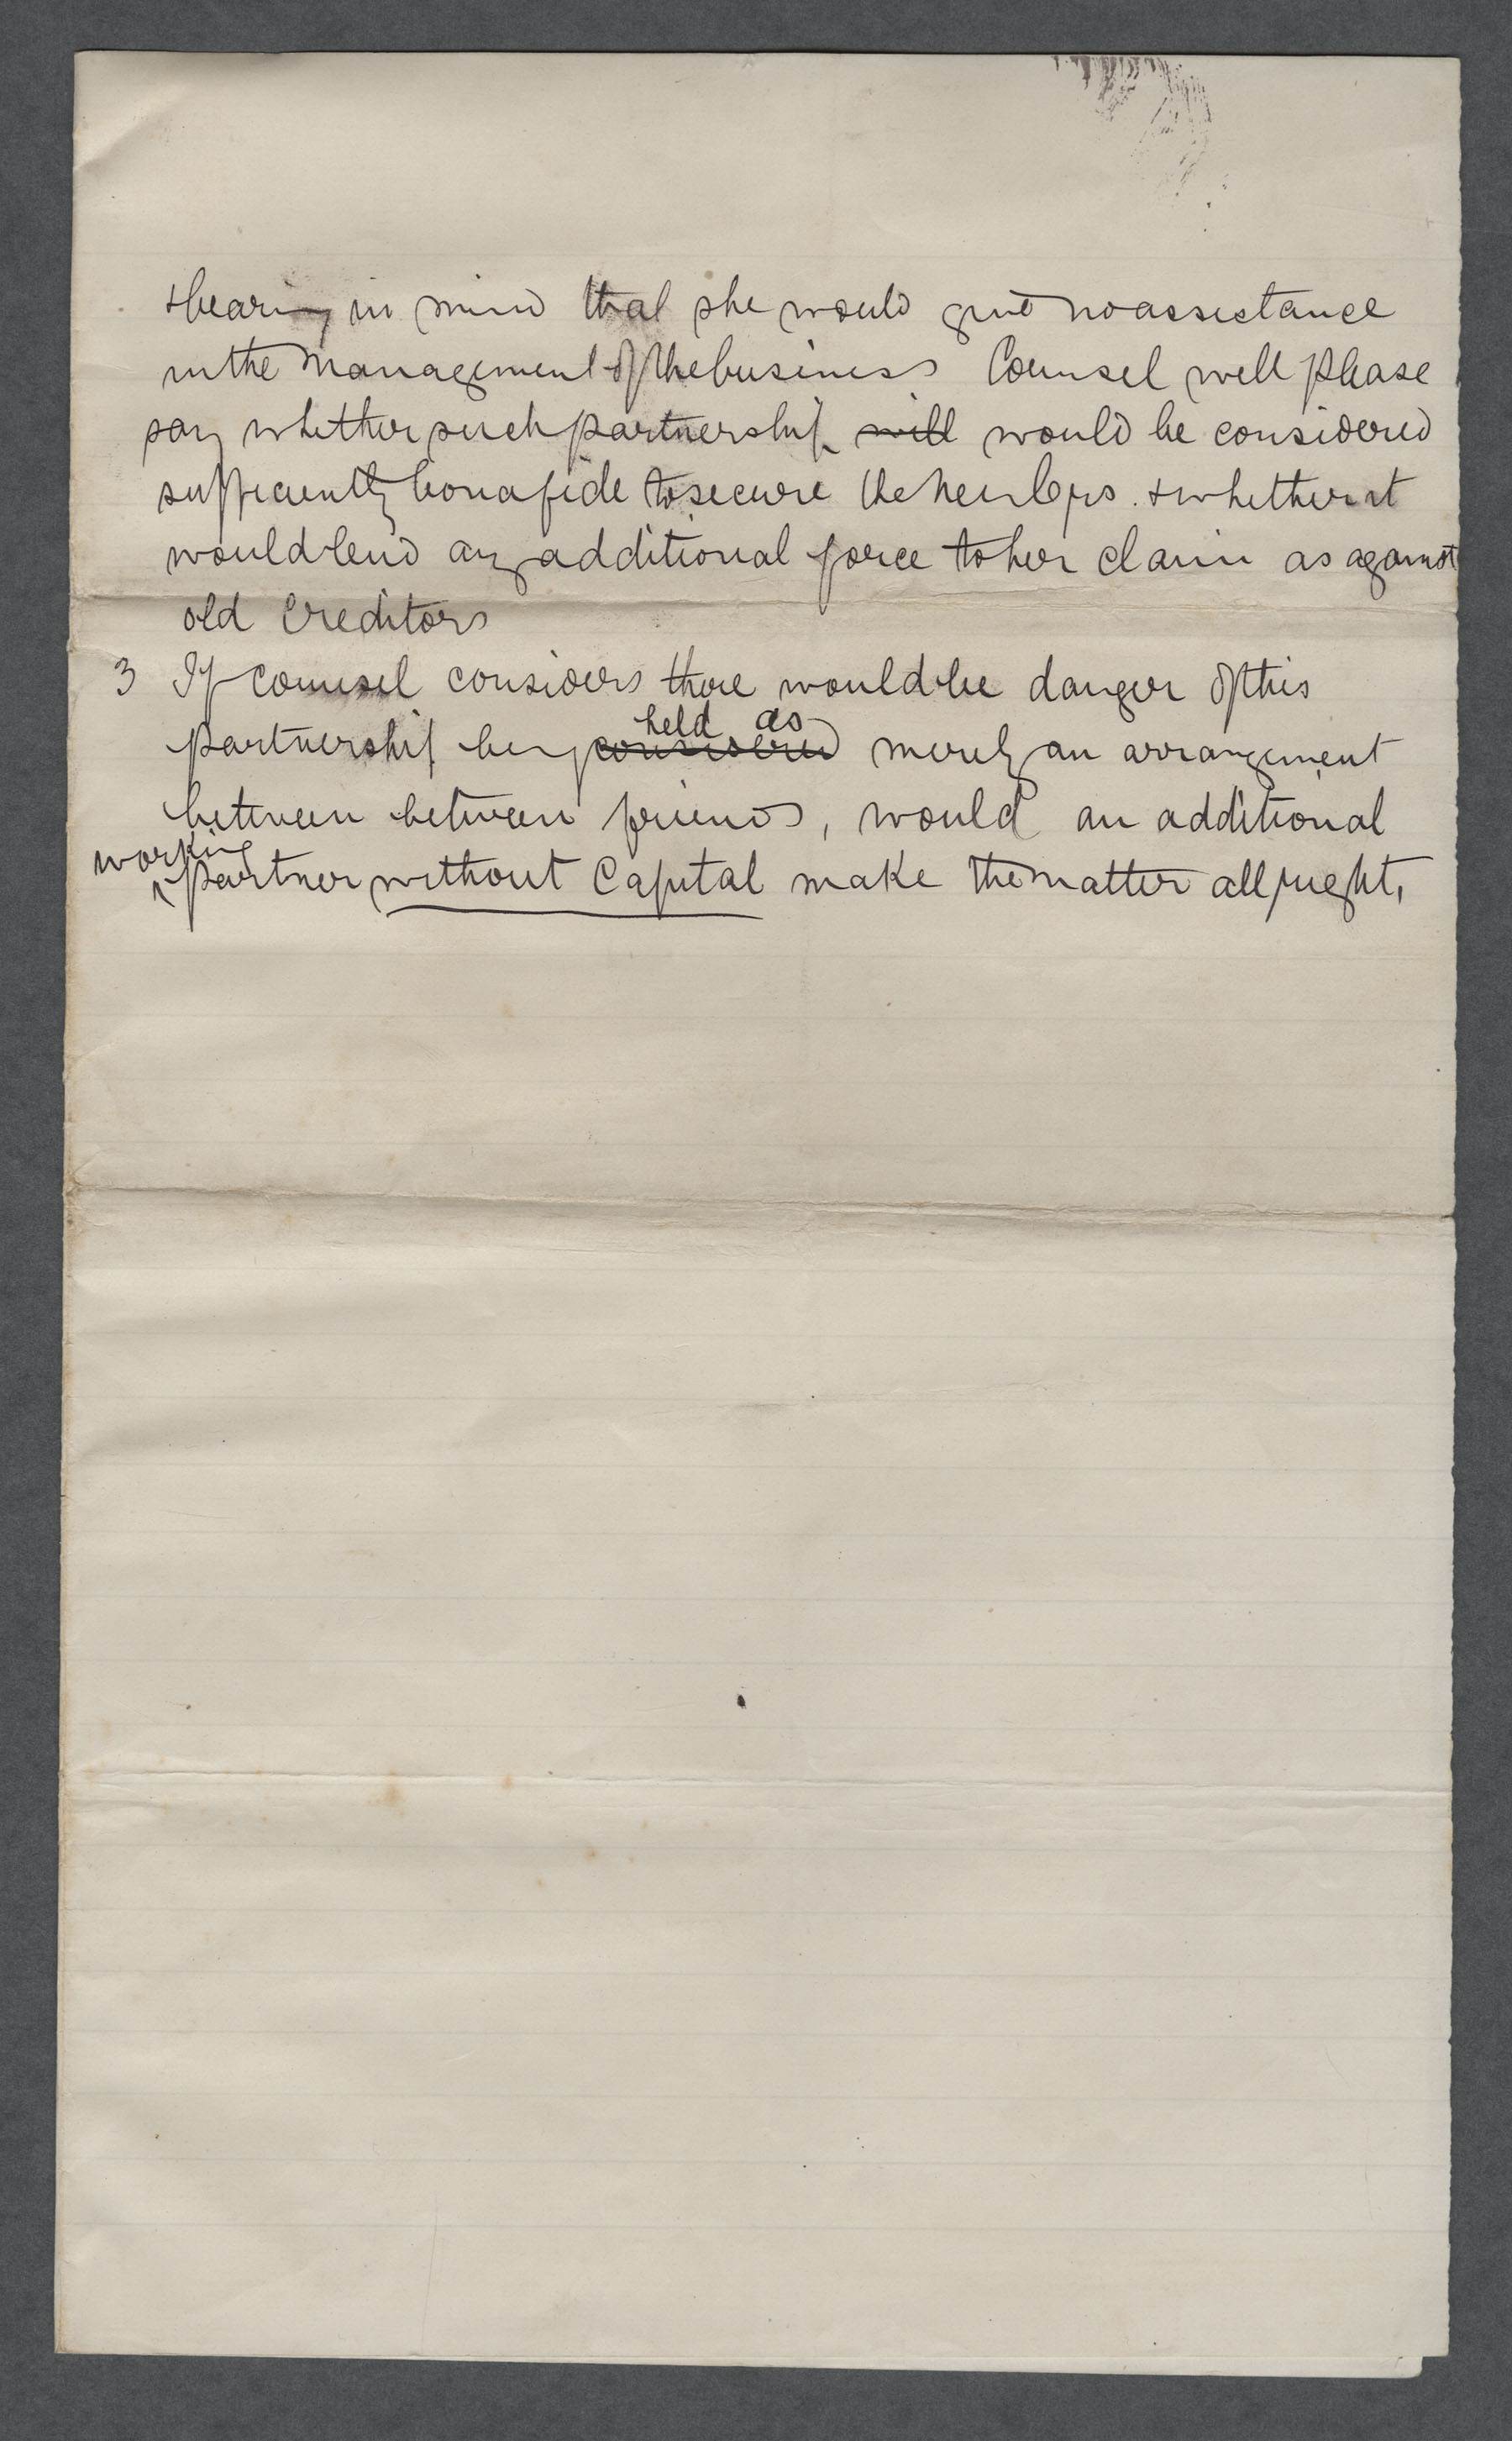 & bearing in mind that she would give no assistance
in the management of the business Counsel will please
say whether such partnership will would be considered
sufficiently bona fide to secure the new & whether it
would lend any additional force to her claim as against
old Creditors
3 If Counsel considers there would be danger of this
held as
partnership being considered merely an arrangement
between between friends, would an additional
working
partner without Capital make the matter all right.